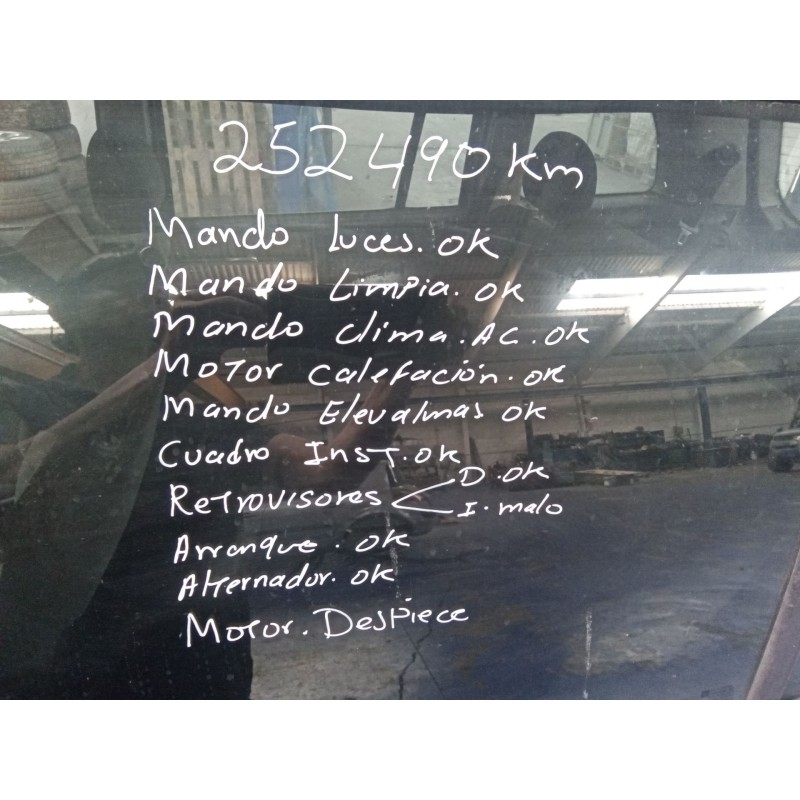 252490 km
Mando luces. OK
Mando Limpia. OK
Mando Clima. AC. OK
Motor Calefación. OK
Mando Elevalunas OK
Cuadro Inst. OK
Retrovisores D. OK
I. malo
Arranque. OK
Alternador. OK
Motor. Despiece